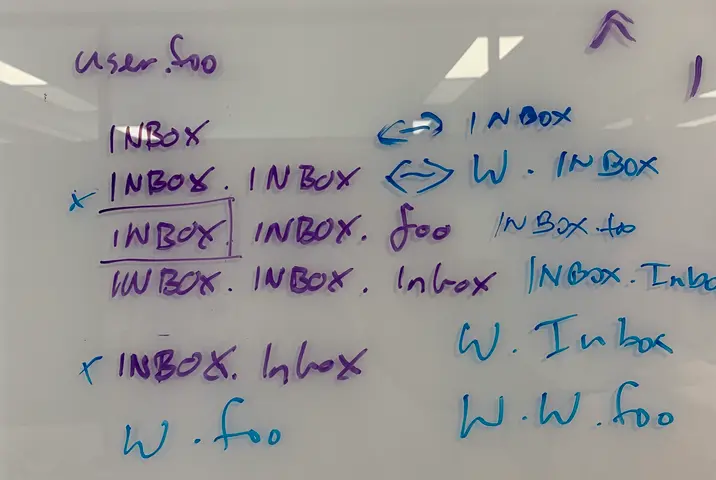 user.foo
INBOX ↔ INBOX
x INBOX. INBOX ↔ W. INBOX
INBOX. INBOX. foo INBOX.foo
INBOX. INBOX. Inbox INBOX.Inbo
W. Inbox
x INBOX. Inbox
W.foo W.W.foo